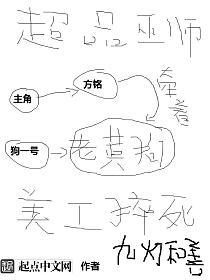 超品巫师
主角
方铭
牵着
狗一号
老黄狗
美工猝死
起点中文网 作者
九灯和善